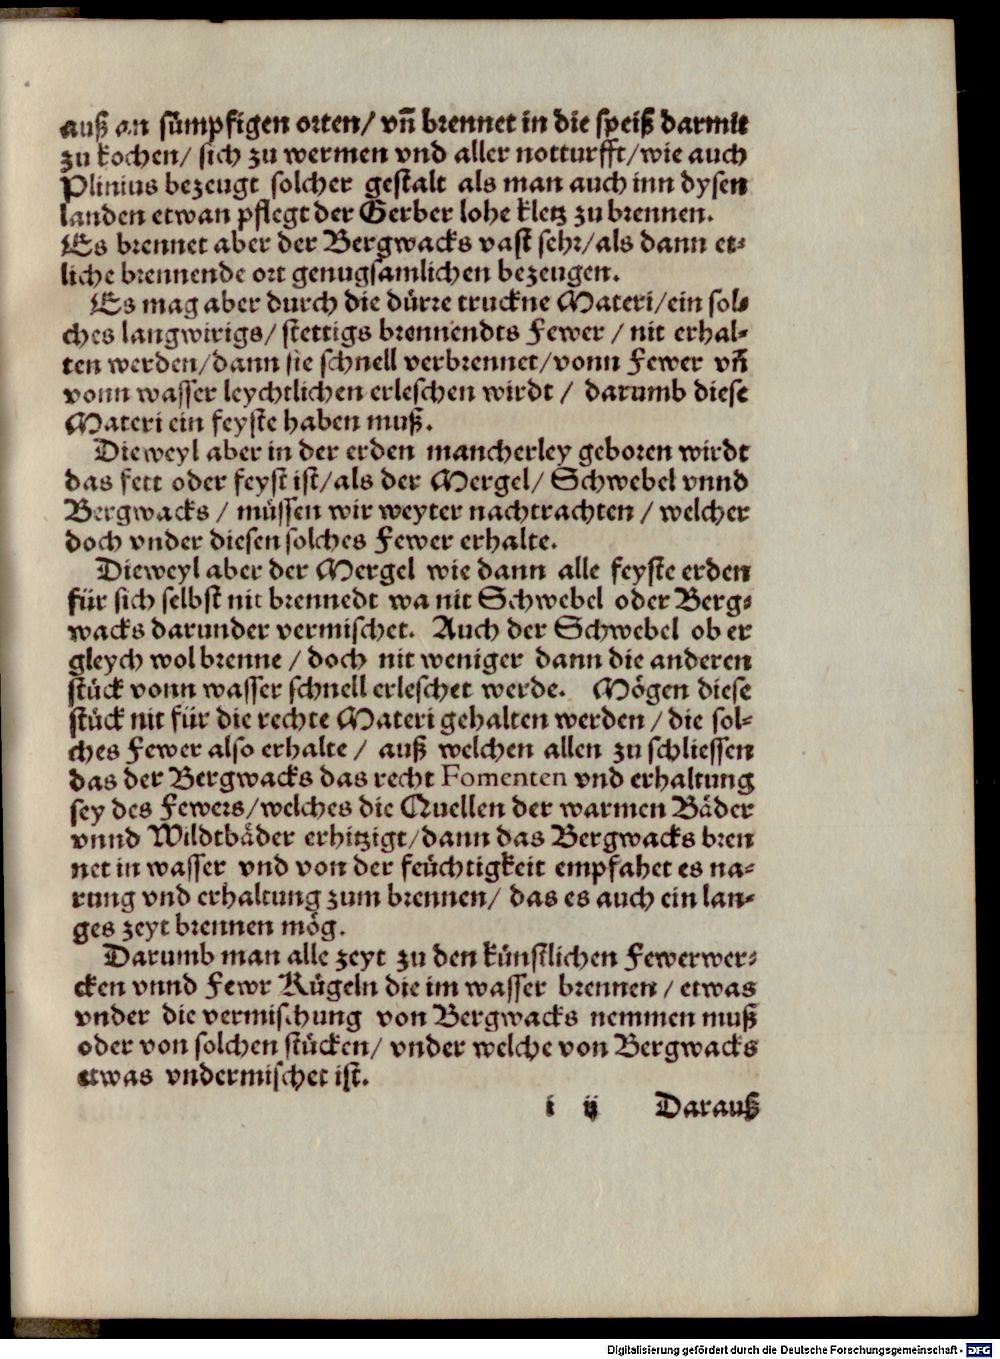 auß an sümpfigen orten/ vñ brennet in die speiß darmit
zu kochen/ sich zu wermen vnd aller notturfft/wie auch
Plinius bezeugt solcher gestalt als man auch inn dysen
landen etwan pflegt der Gerber lohe kletz zu brennen.
Es brennet aber der Bergwacks vast sehr/als dann et-
liche brennende ort genugsamlichen bezeugen.
Es mag aber durch die dürre truckne Materi/ein sol-
ches langwirigs/ stettigs brennendts Fewer / nit erhal-
ten werden/dann sie schnell verbrennet/vonn Fewer vñ
vonn wasser leychtlichen erleschen wirdt / darumb diese
Materi ein feyste haben muß.
Dieweyl aber in der erden mancherley geboren wirdt
das fett oder feyst ist/als der Mergel/ Schwebel vnnd
Bergwacks / müssen wir weyter nachtrachten / welcher
doch vnder diesen solches Fewer erhalte.
Dieweyl aber der Mergel wie dann alle feyste erden
für sich selbst nit brennedt wa nit Schwebel oder Berg-
wacks darunder vermischet. Auch der Schwebel ob er
gleych wol brenne / doch nit weniger dann die anderen
stück vonn wasser schnell erleschet werde. Mögen diese
stück nit für die rechte Materi gehalten werden / die sol-
ches Fewer also erhalte / auß welchen allen zu schliessen
das der Bergwacks das recht Fomenten vnd erhaltung
sey des Fewers/welches die Quellen der warmen Bäder
vnnd Wildtbäder erhitzigt/dann das Bergwacks bren
net in wasser vnd von der feüchtigkeit empfahet es na-
rung vnd erhaltung zum brennen/ das es auch ein lan-
ges zeyt brennen mög.
Darumb man alle zeyt zu den künstlichen Fewerwer-
cken vnnd Fewr Kügeln die im wasser brennen / etwas
vnder die vermischung von Bergwacks nemmen muß
oder von solchen stücken/ vnder welche von Bergwacks
etwas vndermischet ist.
i ij Darauß
Digitalisierung gefördert durch die Deutsche Forschungsgemeinschaft - DFG